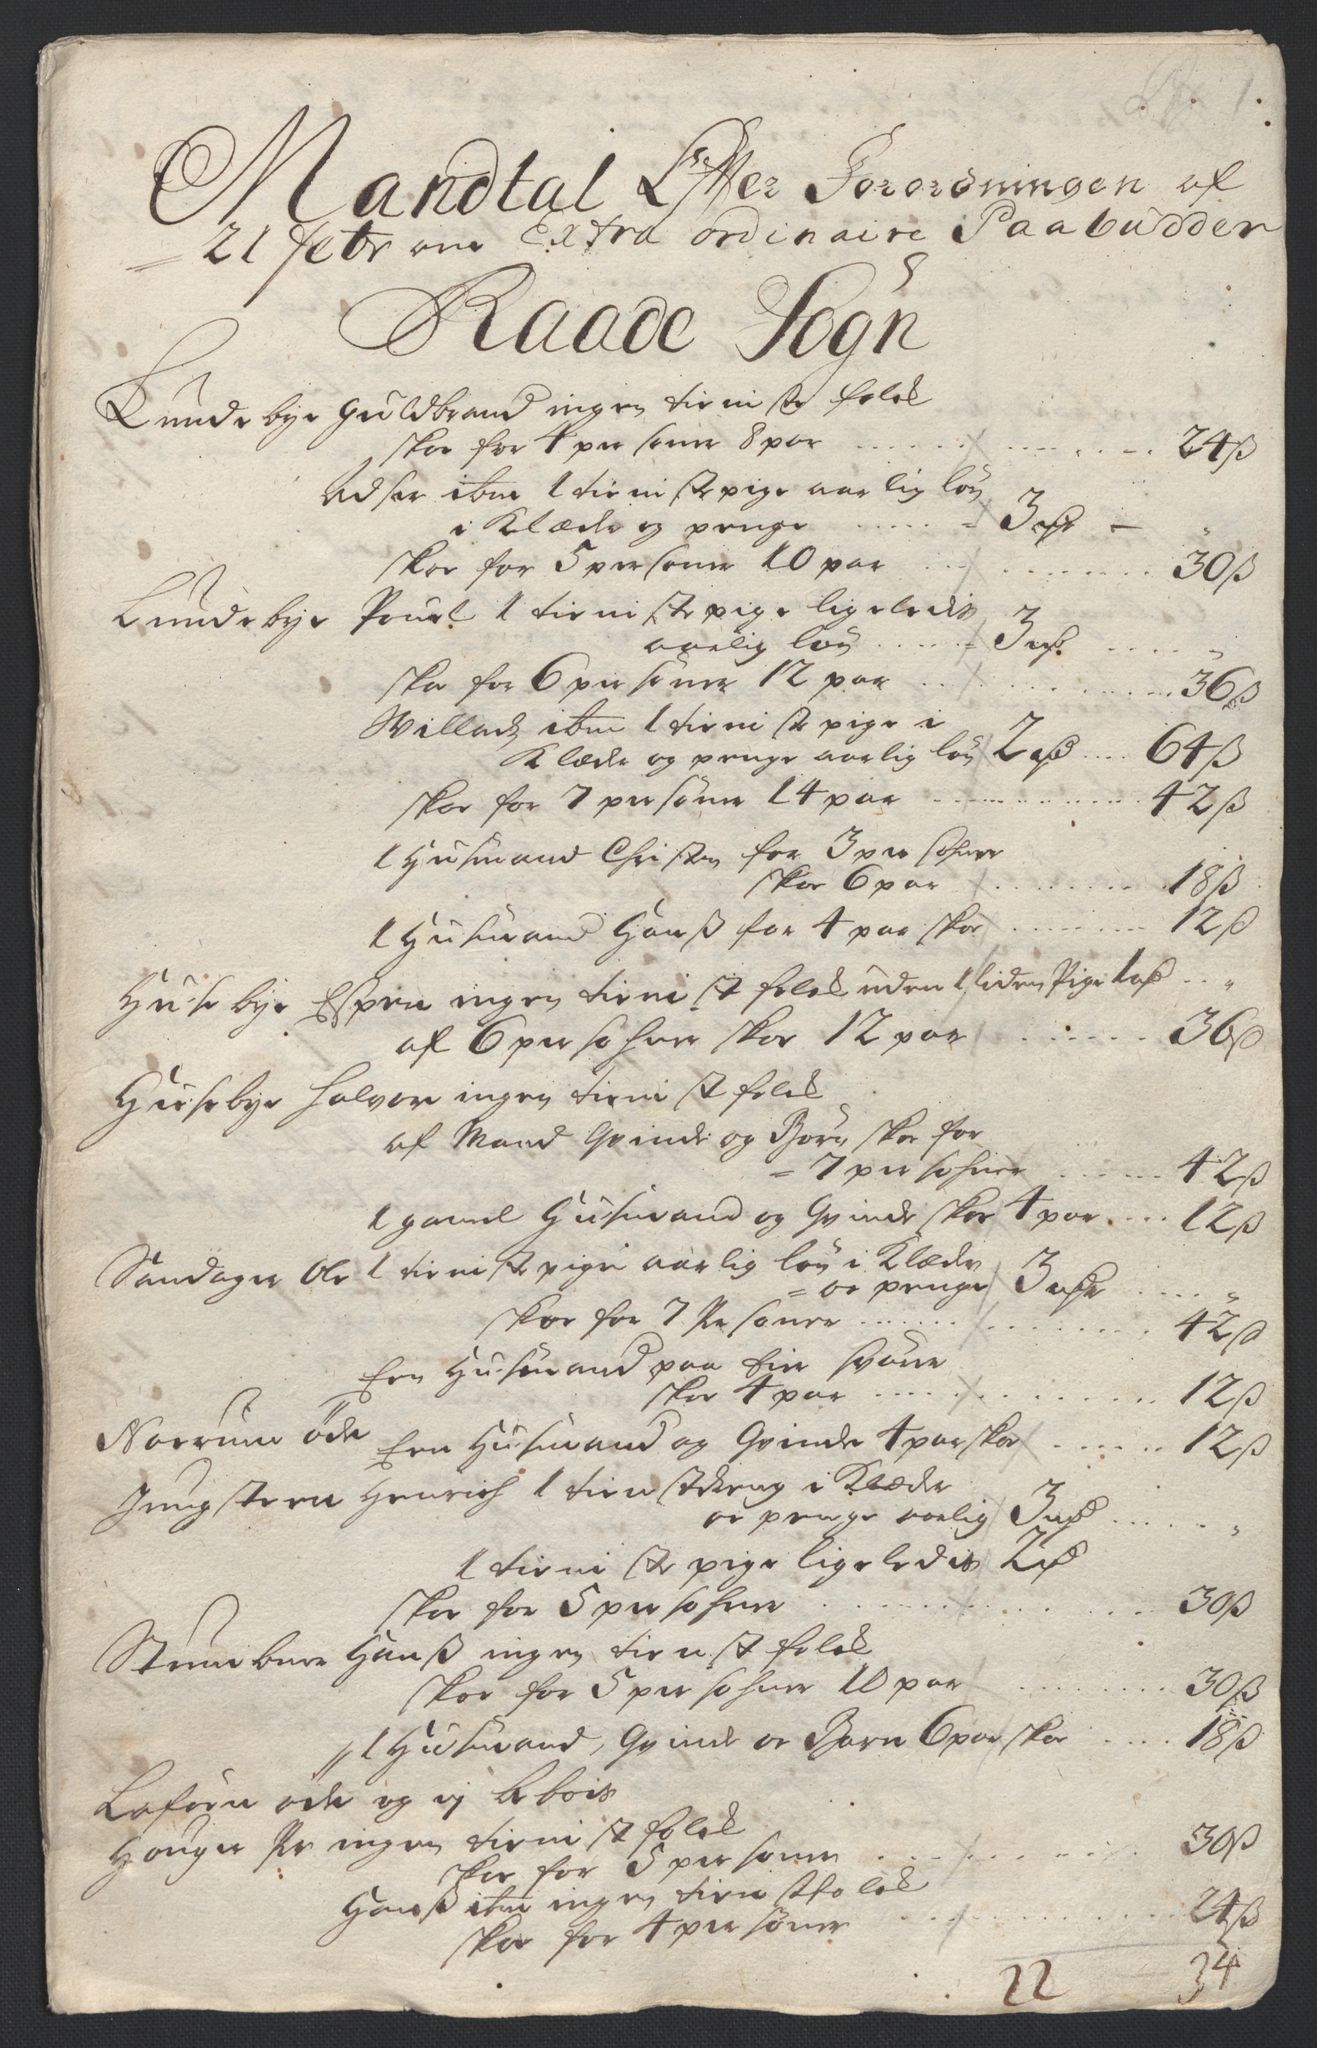 Mandtal Efter Forordningen af
21 febr om Extra ordinaire Paabudder
Raade Sogn
Lundebye Guldbrand ingen tieniste folck
skoe for 4 personer 8 par 24 ß
ibm 1 tieniste pige aarlig løn
i Klæde og penge 3 rdr
skoe for 5 personer 10 par 30 ß
Lundebye Pouel 1 tieniste pige ligeledis
aarlig løn 3 rd
skoe for 6 personer 12 par 36 ß
Willads ibm 1 tieniste pige i
Klæde og penge aarlig løn 2 rd 64 ß
skoe for 7 personer 14 par 42 ß
1 Husmand Christen for 3 persohner
skoe 6 par 18 ß
1 Husmand Hanß for 4 par skoe 12 ß
Husebye Espen ingen tienist folck uden 1 liden Pige 1 rd
af 6 persohner skoe 12 par 36 ß
Husebye Halvor ingen tienist folck
af Mand Qvinde og Børn skoe for
= 7 persohner 42 ß
1 gamel Husmand og Qvinde skoe 4 par 12 ß
Sandager Ole 1 tieniste pige aarlig løn i Klæde
= oc penge 3 rdr
skoe for 7 Personer 42 ß
Een Husmand paa
skoe 4 par 12 ß
Norrum øde Een Husmand og Qvinde 4 par skoe 12 ß
Henrich 1 tienist dreng i Klæde
oc penge aarlig 3 rd
1 tieniste pige ligeledis 2 rd
skoe for 5 persohner 30 ß
Hanß ingen tienist folck
skoe for 5 persohner 10 par 30 ß
1 Husmand, Qvinde oc Børn 6 par skoe 18 ß
øde og ej
Houger Pr ingen tienist folck
skoe for 5 personer 30 ß
Hanß ibm ingen tienist folck
skoe for 4 personer 24 ß
22 34